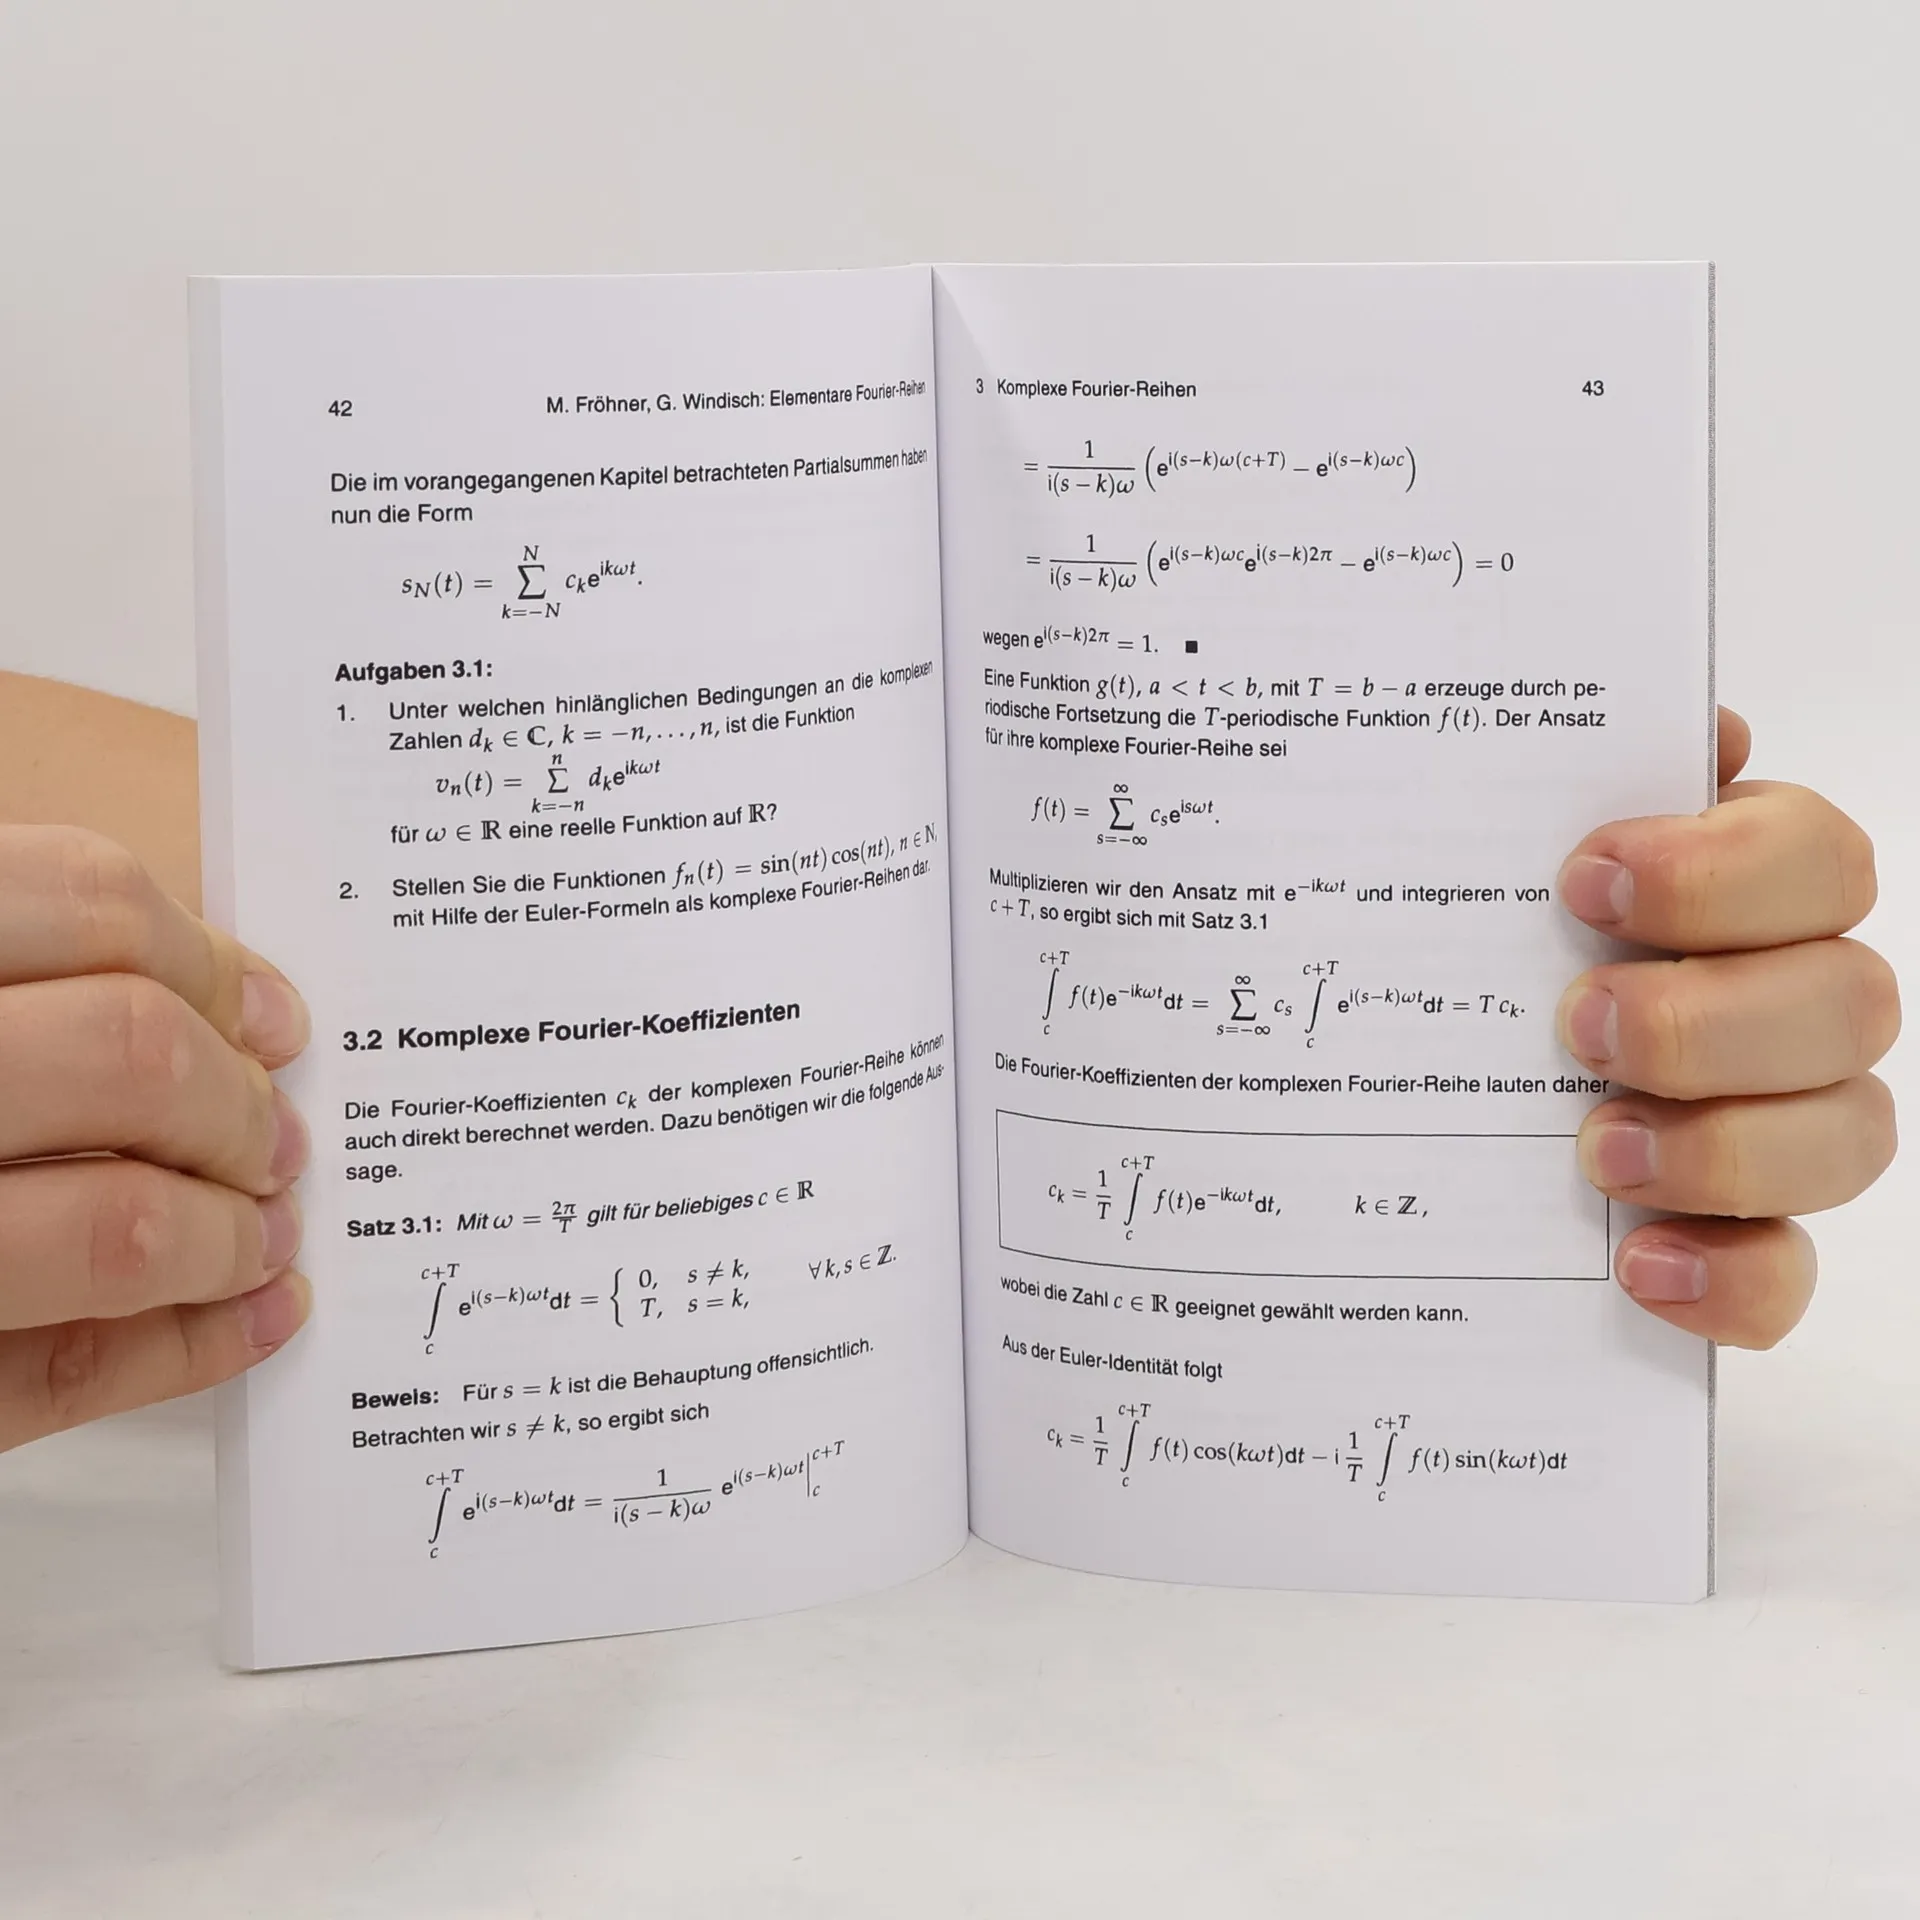 42 M. Fröhner, G. Windisch: Elementare Fourier-Reihen
Die im vorangegangenen Kapitel betrachteten Partialsummen haben
nun die Form
s_N(t) = ∑_{k=−N}^{N} c_k e^{ikωt}.
Aufgaben 3.1:
1. Unter welchen hinlänglichen Bedingungen an die komplexen
Zahlen d_k ∈ ℂ, k = −n, . . . , n, ist die Funktion
v_n(t) = ∑_{k=−n}^{n} d_k e^{ikωt}
für ω ∈ ℝ eine reelle Funktion auf ℝ?
2. Stellen Sie die Funktionen f_n(t) = sin(nt) cos(nt), n ∈ ℕ,
mit Hilfe der Euler-Formeln als komplexe Fourier-Reihen dar.
3.2 Komplexe Fourier-Koeffizienten
Die Fourier-Koeffizienten c_k der komplexen Fourier-Reihe können
auch direkt berechnet werden. Dazu benötigen wir die folgende Aus-
sage.
Satz 3.1: Mit ω = 2π/T gilt für beliebiges c ∈ ℝ
∫_c^{c+T} e^{i(s−k)ωt} dt = { 0, s ≠ k, T, s = k, ∀ k, s ∈ ℤ.
Beweis: Für s = k ist die Behauptung offensichtlich.
Betrachten wir s ≠ k, so ergibt sich
∫_c^{c+T} e^{i(s−k)ωt} dt = 1/(i(s − k)ω) e^{i(s−k)ωt} |_c^{c+T}
3 Komplexe Fourier-Reihen 43
= 1/(i(s − k)ω) (e^{i(s−k)ω(c+T)} − e^{i(s−k)ωc})
= 1/(i(s − k)ω) (e^{i(s−k)ωc} e^{i(s−k)2π} − e^{i(s−k)ωc}) = 0
wegen e^{i(s−k)2π} = 1. ■
Eine Funktion g(t), a < t < b, mit T = b − a erzeuge durch pe-
riodische Fortsetzung die T-periodische Funktion f(t). Der Ansatz
für ihre komplexe Fourier-Reihe sei
f(t) = ∑_{s=−∞}^{∞} c_s e^{isωt}.
Multiplizieren wir den Ansatz mit e^{−ikωt} und integrieren von
c + T, so ergibt sich mit Satz 3.1
∫_c^{c+T} f(t)e^{−ikωt} dt = ∑_{s=−∞}^{∞} c_s ∫_c^{c+T} e^{i(s−k)ωt} dt = T c_k.
Die Fourier-Koeffizienten der komplexen Fourier-Reihe lauten daher
c_k = 1/T ∫_c^{c+T} f(t)e^{−ikωt} dt, k ∈ ℤ,
wobei die Zahl c ∈ ℝ geeignet gewählt werden kann.
Aus der Euler-Identität folgt
c_k = 1/T ∫_c^{c+T} f(t) cos(kωt)dt − i 1/T ∫_c^{c+T} f(t) sin(kωt)dt